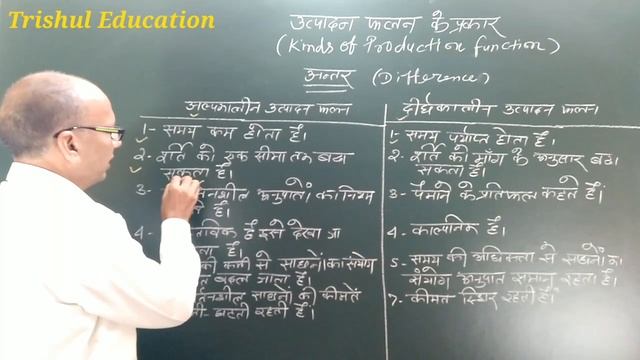 Trishul Education
उत्पादन फलन के प्रकार
(Kinds of Production function)
अन्तर (Difference)
अल्पकालीन उत्पादन फलन
1- समय कम होता है।
2- पूर्ति को एक सीमा तक बढ़ा
सकता है।
3- शील अनुपातों का नियम
है।
4- है इसे देखा जा
है।
की कमी से साधनों का संयोग
बदल जाता है।
साधनों की कीमतें
बढ़ती रहती है।
दीर्घकालीन उत्पादन फलन।
1- समय पर्याप्त होता है।
2- पूर्ति को माँग के अनुसार बढ़ा
सकता है।
3- पैमाने के प्रतिफल कहते हैं।
4- काल्पनिक है।
5- समय की अधिकता से साधनों का
संयोग अनुपात समान रहता है।
7- कीमत स्थिर रहती है।